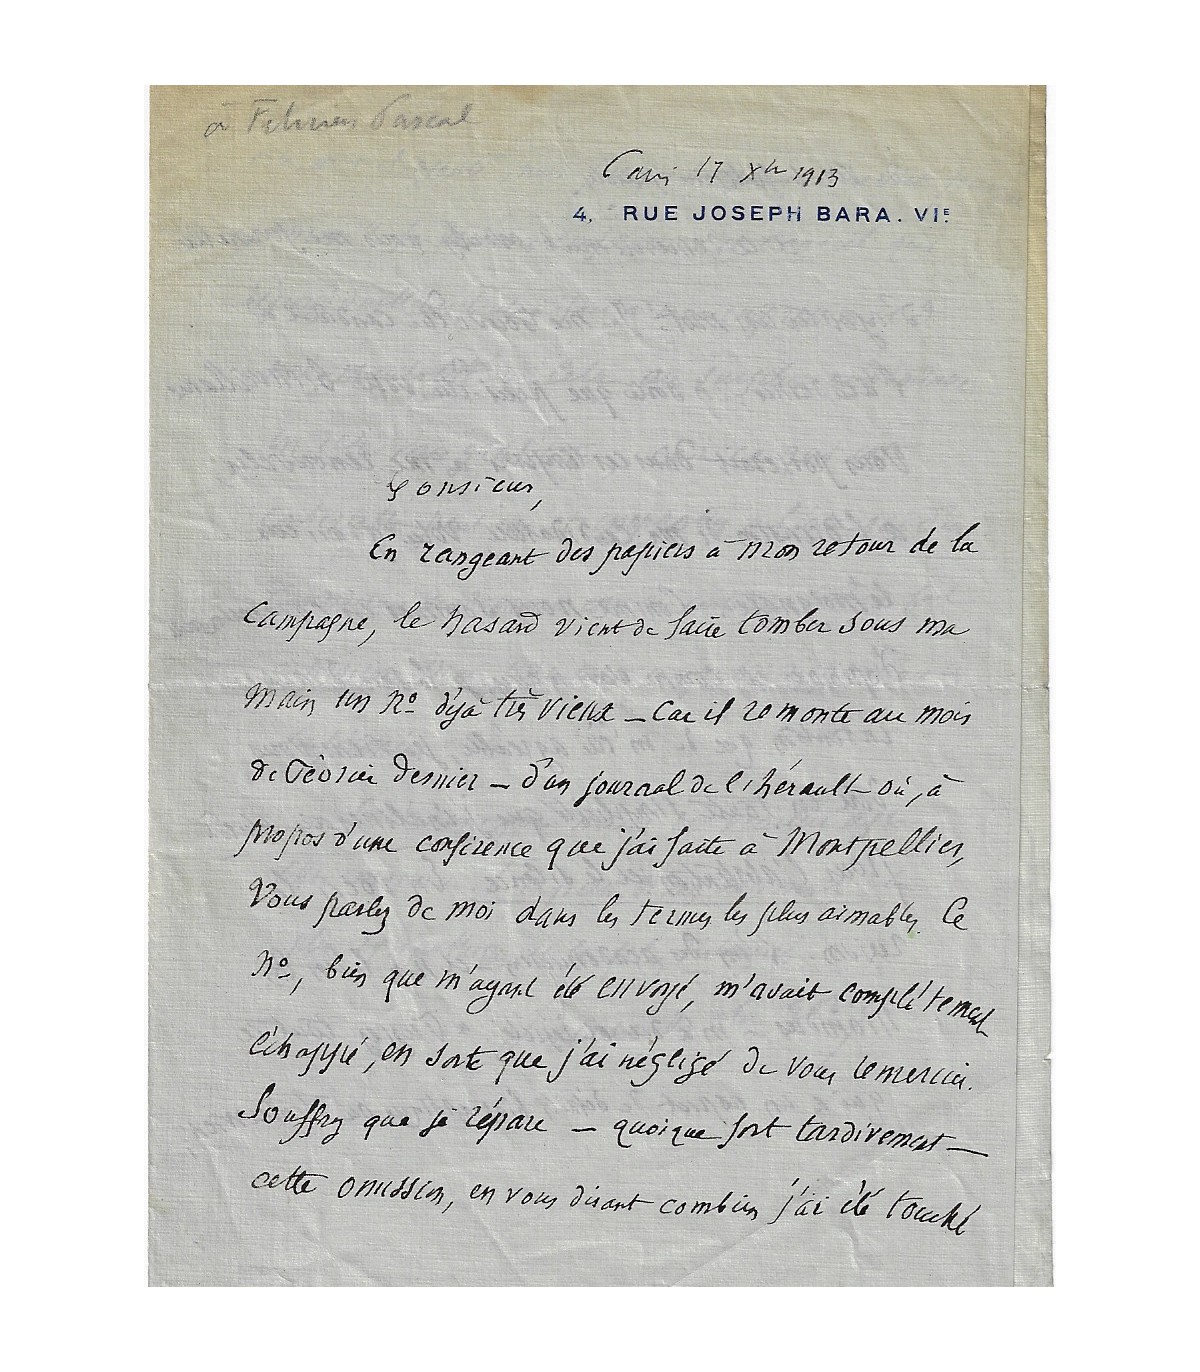 à Félicien Pascal
Paris 17 Xbre 1913
4, RUE JOSEPH BARA. VIE
Monsieur,
En rangeant des papiers à mon retour de la
campagne, le hasard vient de faire tomber sous ma
main un No déjà très vieux – car il remonte au mois
de février dernier – d'un journal de l'hérault où, à
propos d'une conférence que j'ai faite à Montpellier,
vous parlez de moi dans les termes les plus aimables. Ce
No, bien que m'ayant été envoyé, m'avait complètement
échappé, en sorte que j'ai négligé de vous remercier.
Souffrez que je répare – quoique fort tardivement –
cette omission, en vous disant combien j'ai été touché